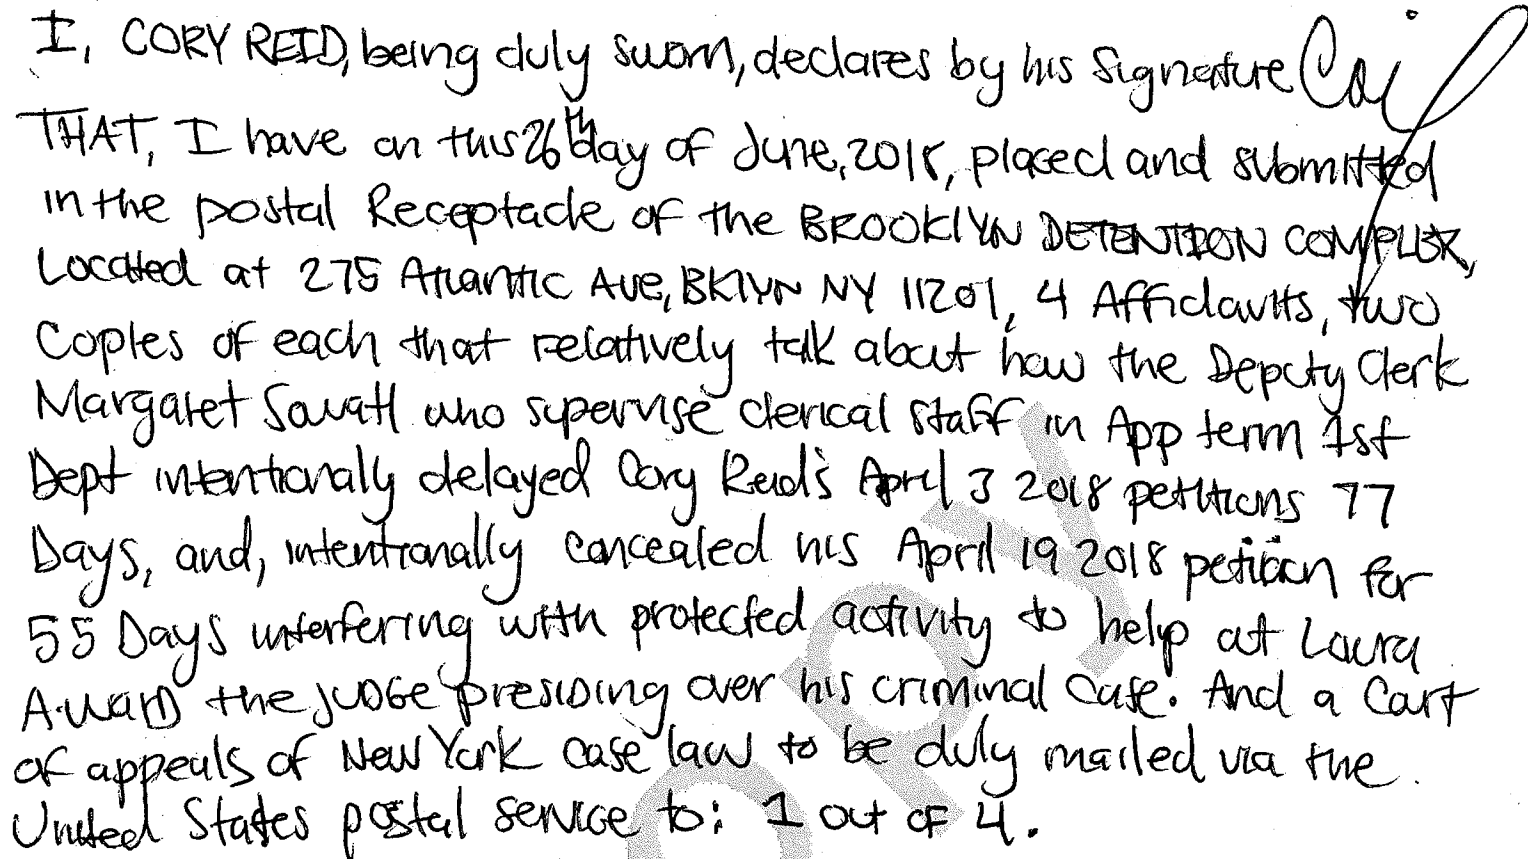 I, CORY REID, being duly sworn, declares by his signature
THAT, I have on this 26th day of June, 2018, placed and submitted
in the postal Receptacle of the BROOKLYN DETENTION COMPLEX,
Located at 275 Atlantic Ave, BKLYN NY 11201, 4 Affidavits, two
Copies of each that relatively talk about how the Deputy Clerk
Margaret who supervise clerical staff in App term 1st
Dept intentionally delayed Cory Reid's April 3 2018 petitions 77
Days, and, intentionally concealed his April 19 2018 petition for
55 Days interfering with protected activity to help at Laura
A. Ward the JUDGE presiding over his criminal case. And a Court
of appeals of New York case law to be duly mailed via the
United States postal service to: 1 out of 4.
COPY